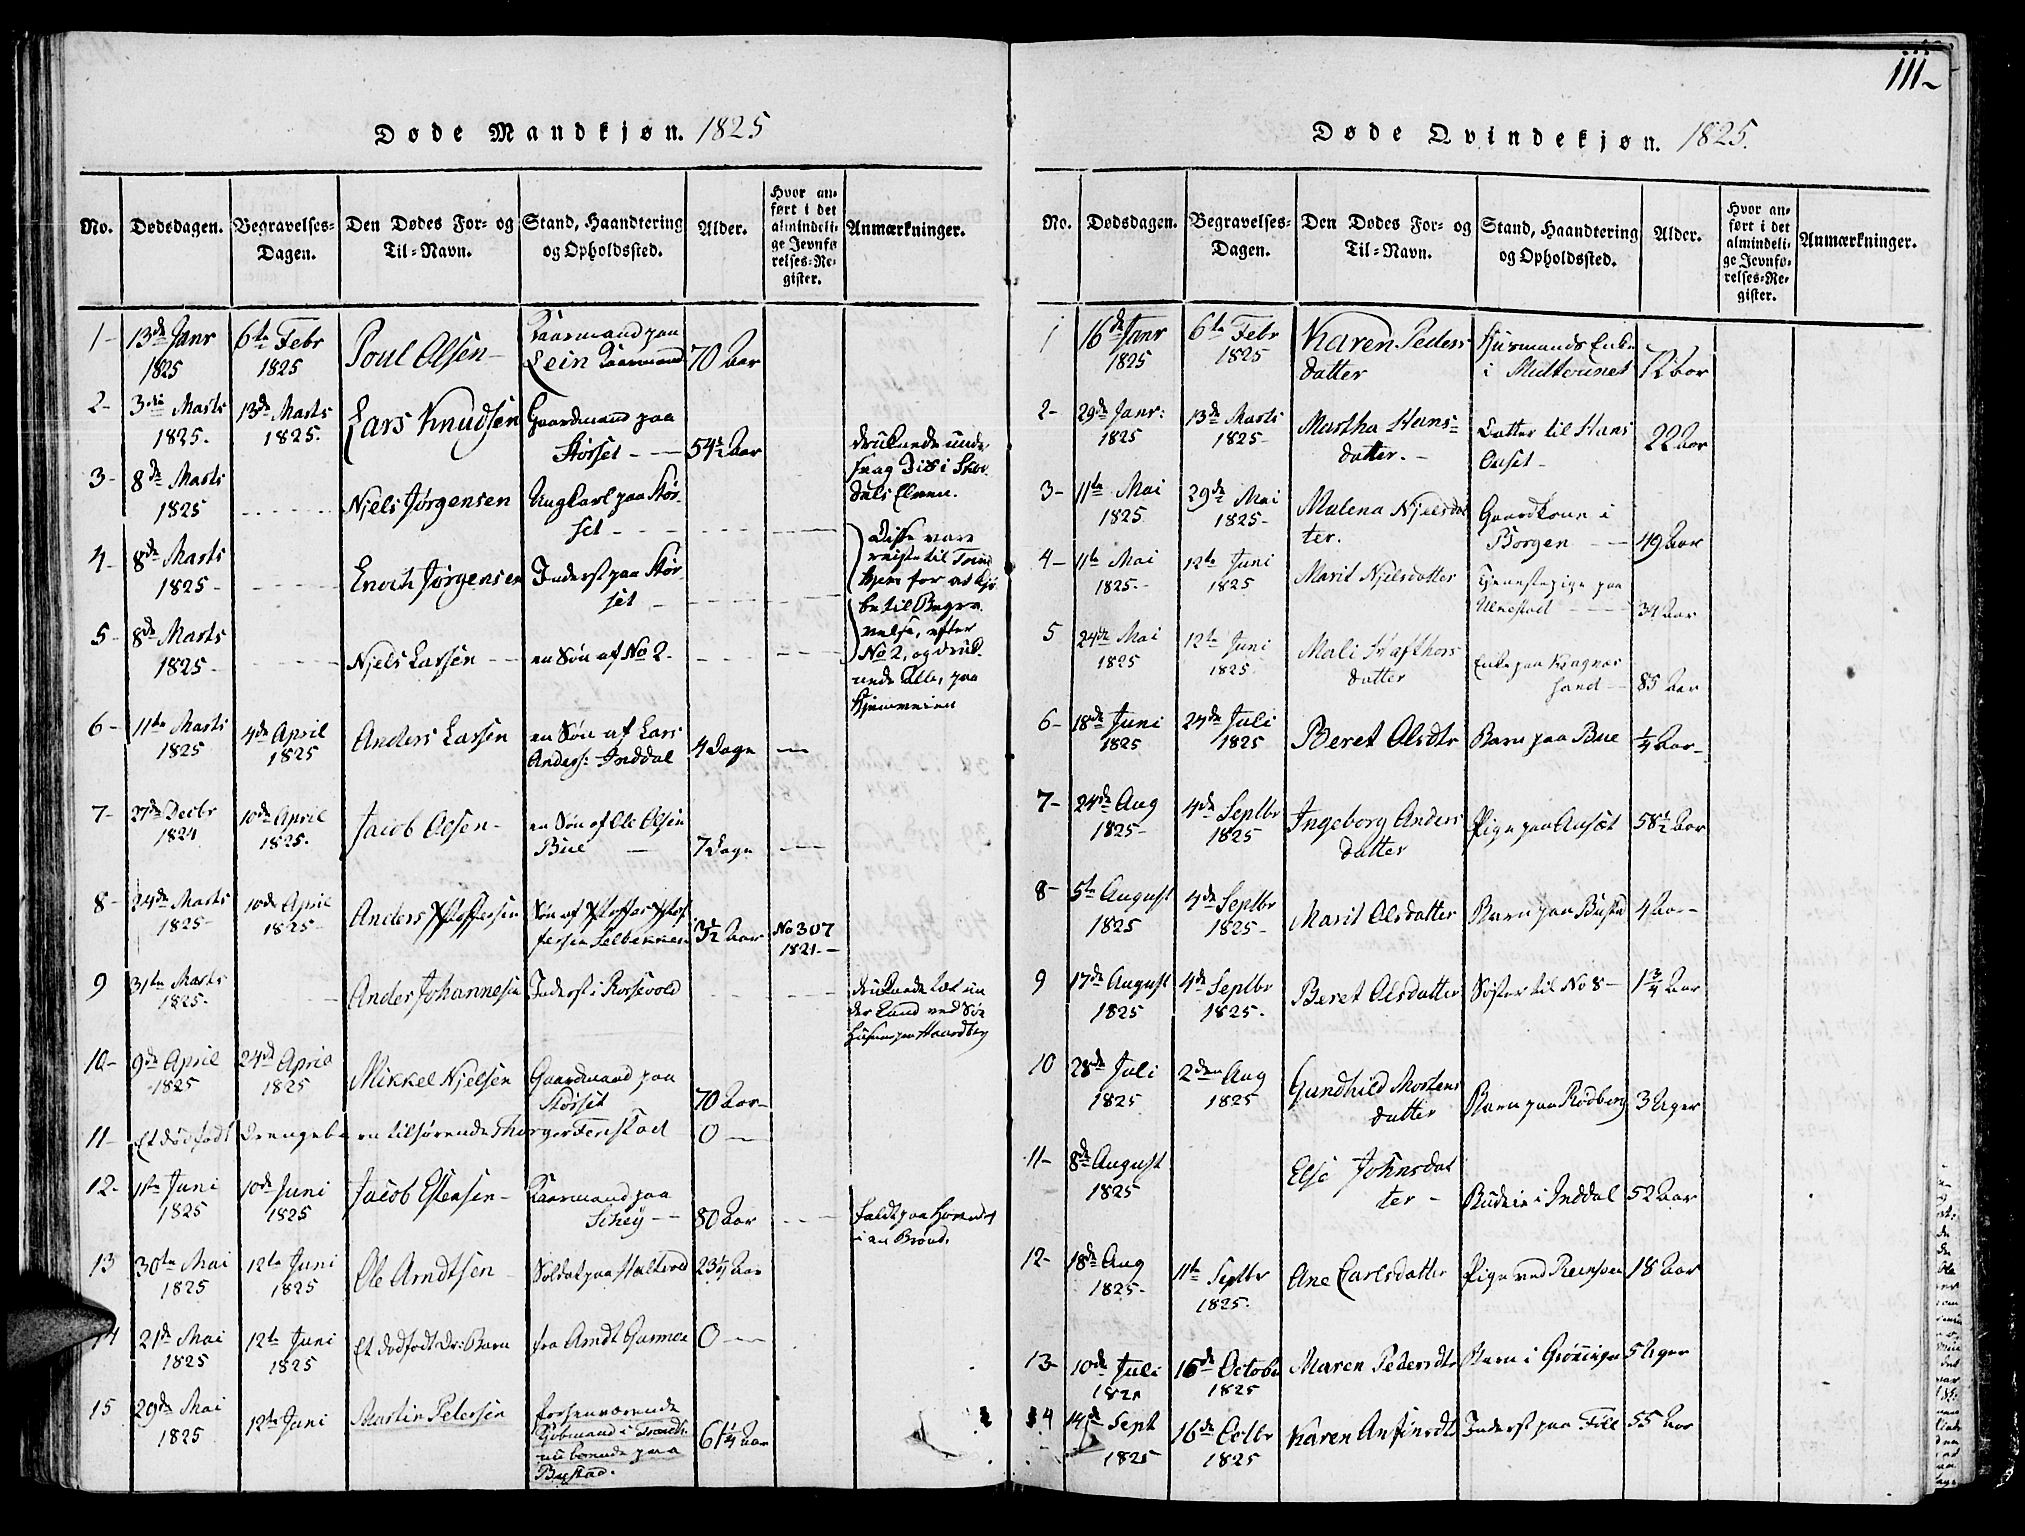 111
Døde Mandkjøn. 1825
No. Dødsdagen. Begravelses-Dagen. Den Dødes For- og Til-Navn. Stand, Haandtering og Opholdssted. Alder. Hvor anført i det almindelige Jevnførelses-Register. Anmærkninger.
1- 13de Janr 1825 6te Febr 1825 Poul Olsen- Kaarmand paa Lein Kaarmand 70 Aar
2- 3die Marts 1825. 13de Marts 1825. Lars Knudsen Gaardmand paa Størset - 54½ Aar druknede
3- 8de Marts 1825 Njels Jørgensen Ungkarl paa Størset
i Stordals Elven.
4- 8de Marts 1825- Enoch Jørgensen Inderst paa Størset -
Disse vare reiste til Trondhjem for at kjøbe til Begravelse, efter No 2, og druknede alle, paa Hjemveien
5- 8de Marts 1825- Njels Larsen - en Søn af No 2-
6- 11te Marts 1825 4de April 1825 Anders Larsen en Søn af Lars Anders: Inddal 4 Dage
7- 27de Decbr 1824 10de April 1825. Jacob Olsen- en Søn af Ole Olsen Bue 7 Dage
8- 24de Marts 1825- 10de April 1825- Anders Xstoffersen Søn af Xstoffer Xstoffersen 3½ Aar No 307 1821.-
9 31te Marts 1825- Anders Johannesen Inderst i druknede tæt under Land ved
10- 9de April 1825 24de April 1825 Mikkel Njelsen Gaardmand paa Størset 70 Aar-
11- Et dødfødt Drengebarn tilhørende 0 -
12- 11te Juni 1825 10de Juni 1825 Jacob Estensen- Kaarmand paa Schey - 80 Aar faldt paa Hovedet i en Brønd.
13 30te Mai 1825 12te Juni 1825 Ole Arndtsen Soldat paa 23¼ Aar
14 21de Mai 1825 12te Juni 1825 Et dødfødt Dr: Barn fra Arndt 0 -
15 29de Mai 1825 12te Juni Martin Petersen forhenværende Kjøbmand i Trondh. nu boende paa Bustad. 61¼ Aar
Døde Qvindekjøn. 1825.
No. Dødsdagen. Begravelses-Dagen. Den Dødes For- og Til-Navn. Stand, Haandtering og Opholdssted. Alder. Hvor anført i det almindelige Jevnførelses-Register. Anmærkninger.
1 16de Janr 1825 6te Febr 1825 Karen Pedersdatter Huusmands Enke i 72 Aar
2- 29de Janr: 1825 13de Marts 1825- Martha Hansdatter.- Datter til Hans 22 Aar
3- 11te Mai 1825 29de Mai 1825- Malena Njelsdatter. Gaardkone i Borgen - 49 Aar
4- 11te Mai 1825- 12te Juni 1825 Marit Njelsdatter Tjenestepige paa 34 Aar
5 24de Mai 1825 12te Juni 1825 Mali Hafthorsdatter Enke paa 85 Aar
6- 18de Juni 1825 24de Juli 1825 Beret Olsdtr Barn paa Bue ¼ Aar-
7- 24de Aug 1825- 4de Septbr 1825 Ingeborg Andersdatter Pige paa Auset 58½ Aar
8- 5te August 1825 4de Septbr 1825- Marit Olsdatter Barn paa Bustad 4 Aar-
9 17de August 1825 4de Septbr 1825. Beret Olsdatter Søster til No 8- 1¾ Aar
10 28de Juli 1825 2den Aug 1825 Gundhild Mortensdatter Barn paa Rødberg 3 Uger
11- 8de August 1825 Else Johnsdatter - Budeie i Inddal 52 Aar
12- 18de Aug 1825- 11te Septbr 1825. Ane Carlsdatter Pige ved 18 Aar
13- 10de Juli 1825 16de October 1825 Maren Pedersdtr Barn i Grøningen 5 Uger
14 14de Sept 1825 16de Octbr 1825 Karen Anfindtr Inderst paa 55 Aar